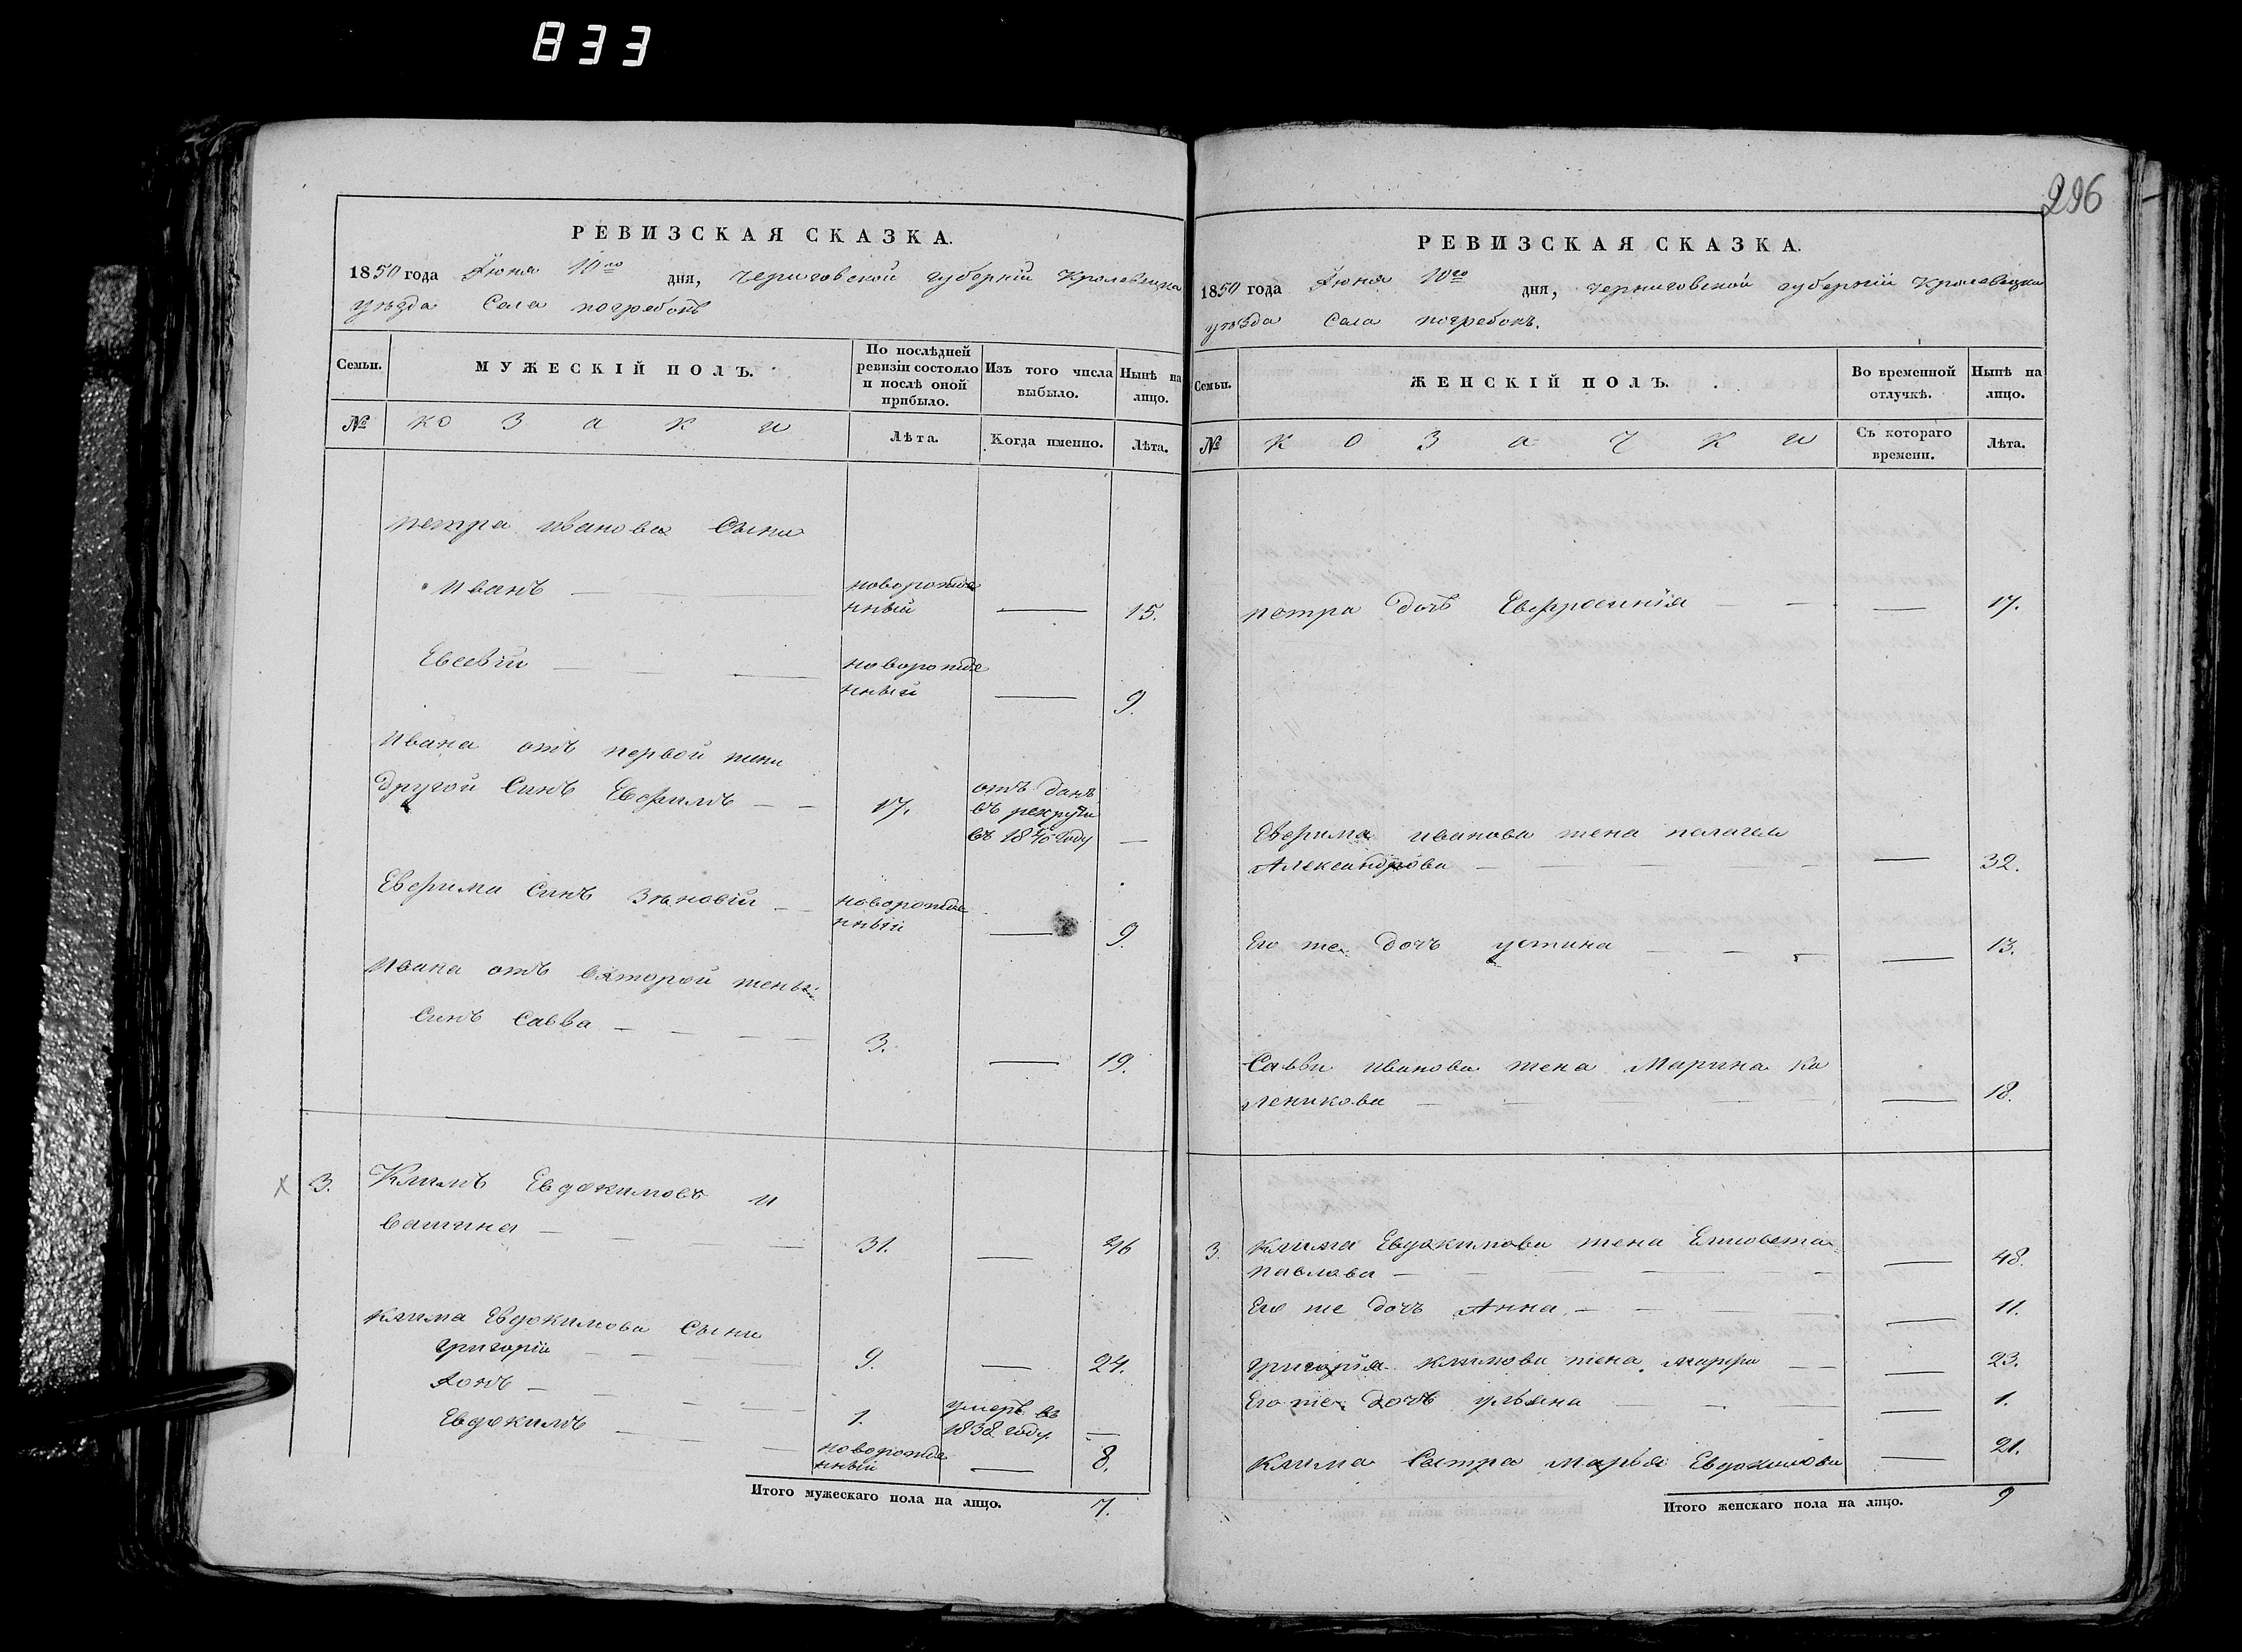 833
296
РЕВИЗСКАЯ СКАЗКА.
1850 года Июня 10го дня, черниговской губерніи Кролевецка
уѣзда Села погребокъ
Семьи.
МУЖЕСКІЙ ПОЛЪ.
По послѣдней
ревизіи состояло
и послѣ оной
прибыло.
Изъ того числа
выбыло.
Нынѣ на
лицо.
№
козаки
Лѣта.
Когда именно.
Лѣта.
петра иванова Сыны
иванъ — новорожде
нный — 15.
Евсевій — новорожде
нный — 9.
ивана отъ первой жены
другой Синъ Евфимъ — 17. отъ данъ
въ рекруты
въ 1840 году —
Евфима Синъ Зѣновій — новорожде
нный — 9.
ивана отъ вторοй жены
Синъ Савва — 3. — 19.
3. Климъ Евдокимовъ и
вашина — 31. — 46
клима Евдокимова Сыны
григорій — 9. — 24.
— 1. умеръ въ
1838 году —
Евдокимъ — новорожде
нный — 8.
Итого мужескаго пола на лицо. 7.
РЕВИЗСКАЯ СКАЗКА.
1850 года Июня 10го дня, черниговской губерніи Кролевецка
уѣзда Села погребокъ.
Семьи.
ЖЕНСКІЙ ПОЛЪ.
Во временной
отлучкѣ.
Нынѣ на
лицо.
№
козачки
Съ котораго
времени.
Лѣта.
петра дочъ Евфросинія — — 17.
Евфима иванова жена пелагея
Александрова — — 32.
Его же дочъ устина — — 13.
Саввы иванова жена Марина Ка
леникова — — 18.
3. клима Евдокимова жена Елисовета
павлова — — 48.
Его же дочъ Анна — — 11.
григорія климова жена марфа — — 23.
Его же дочъ ульяна — — 1.
клима Сестра марья Евдокимова — 21.
Итого женскаго пола на лицо. 9